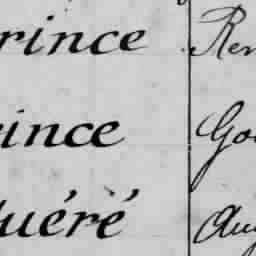 rince Ren
rince Go
uéré Aug